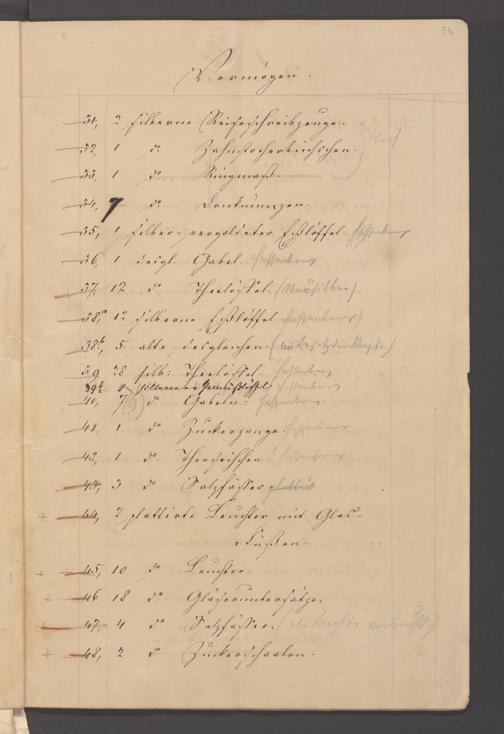 54
Vermögen.
31, 2 silberne Reiseschreibzeuge.
32, 1 do Zahnstocherbüchschen.
33, 1 do Ringmaß.
34, 7 do Denkmünzen.
35, 1 silber-vergoldeter Eßlöffel
36, 1 desgl. Gabel
37, 12 do Theelöffel (Neusilber)
38a, 12 silberne Eßlöffel
38b, 5 alte desgleichen
39, 28 silb: Theelöffel
39b 4 silberne Gemüselöffel
40, 7 (9) do Gabeln
41, 1 do Zuckerzange
42, 1 do
43, 3 do Salzfässer plattirt
44, 2 plattirte Leuchter mit Glas-
Füßen.
45, 10 do Leuchter
46, 18 do Gläseruntersätze.
47, 4 do Salzfässer.
48, 2 do Zuckerschaalen.